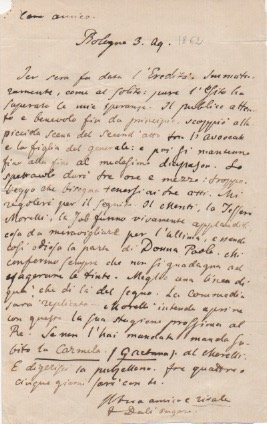 Caro amico.
Bologna 3. Ag. 1862
Ier sera fu data l'Eredità
ramente, come al solito: pure l'esito ha
superato le mie speranze. Il pubblico atten
to e benevolo fin da principio, scoppiò alla
piccola scena del second'atto tra l'avvocato
e la figlia del generale: e poi si mantenne
fino alla fine al medesimo diapason. Lo
spettacolo durò tre ore e mezzo: troppo.
Veggo che bisogna tenersi ai tre atti. Mi
regolerò per il seguito. Il Monti, la
Morelli, la Job furono vivamente applauditi
cosa da maravigliare per l'ultima, essendo
odiosa la parte di Donna Paola. Mi
confermo sempre che non si guadagna ad
esagerare le tinte. Meglio una linea di
qua che di là del segno. La commedia
sarà replicata. Morelli intende aprire
con questa la sua stagione prossima al
Re. Se non l'hai mandata manda su
bito la Carmela (Gaetano) al Morelli.
E digerisci la
cinque giorni sarò con te.
Il tuo amico e rivale
F. Dall'Ongaro